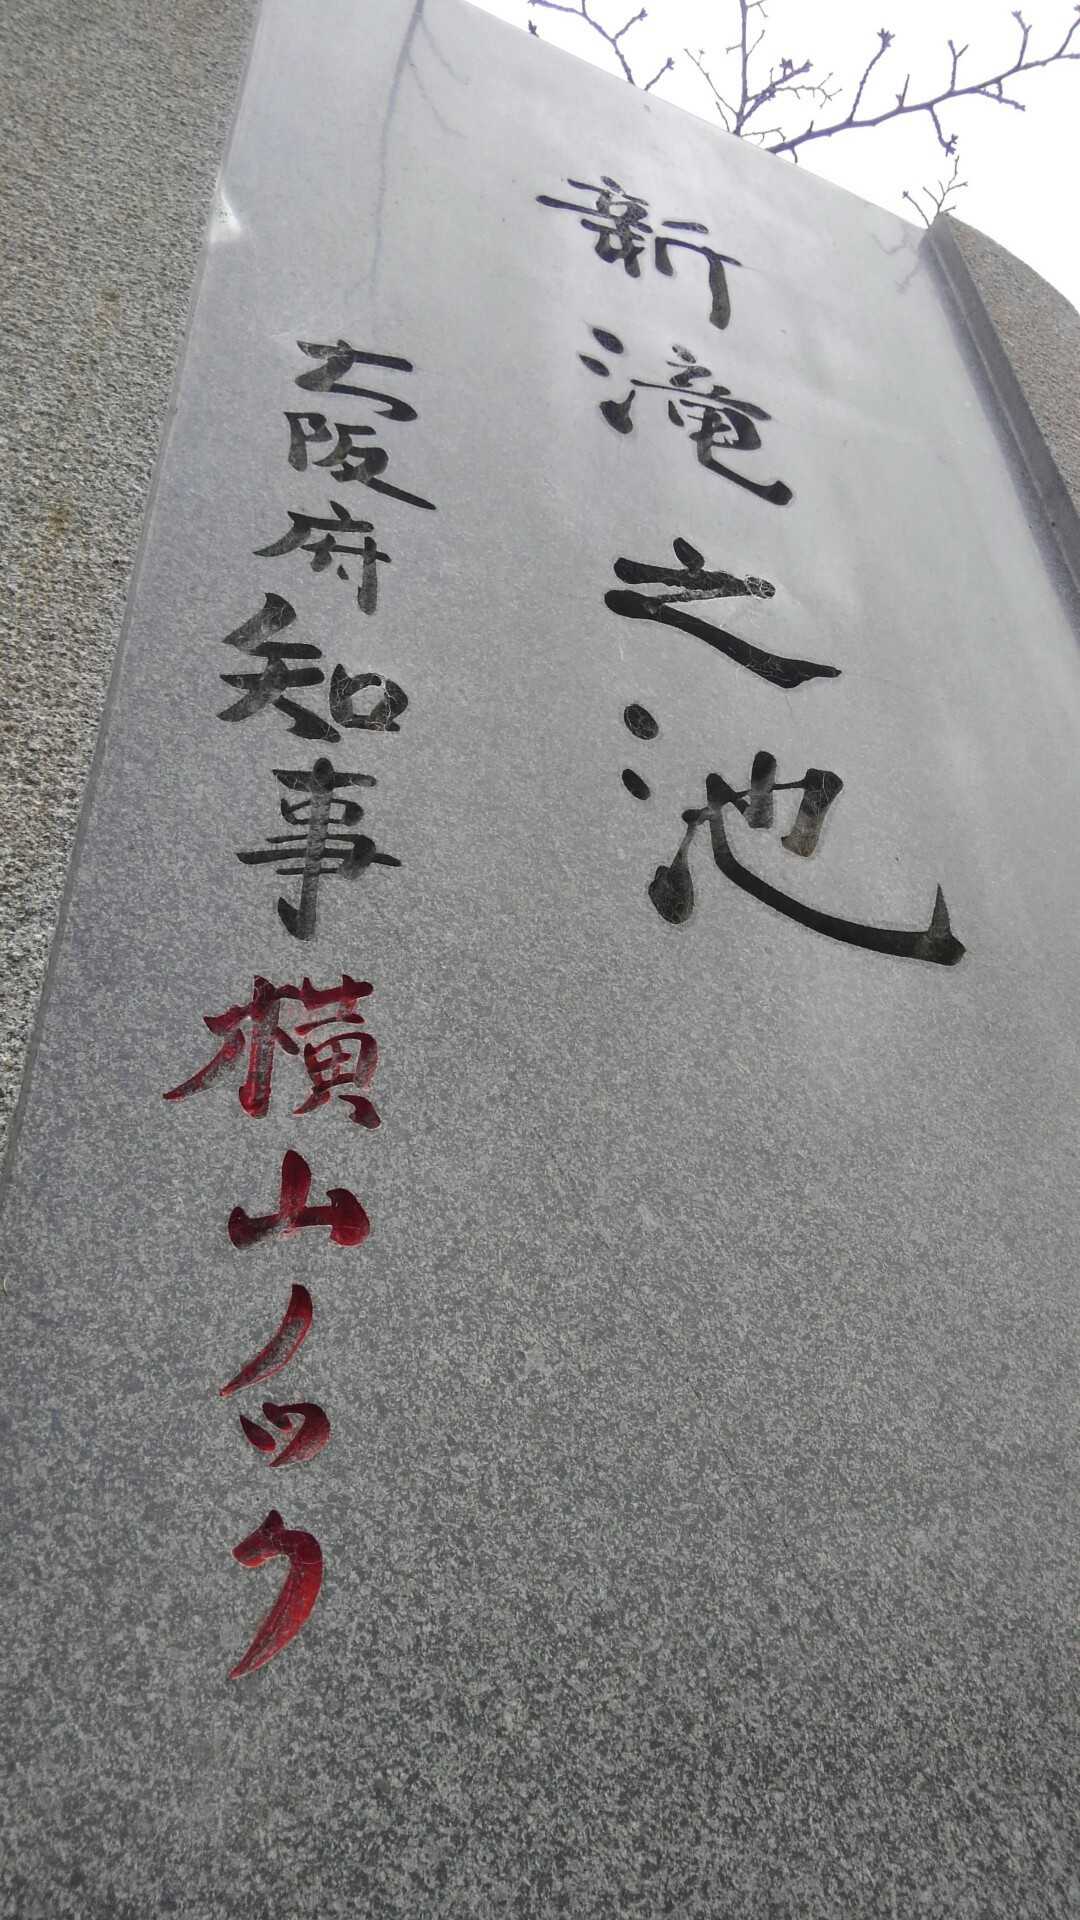 新滝之池
大阪府知事横山ノック